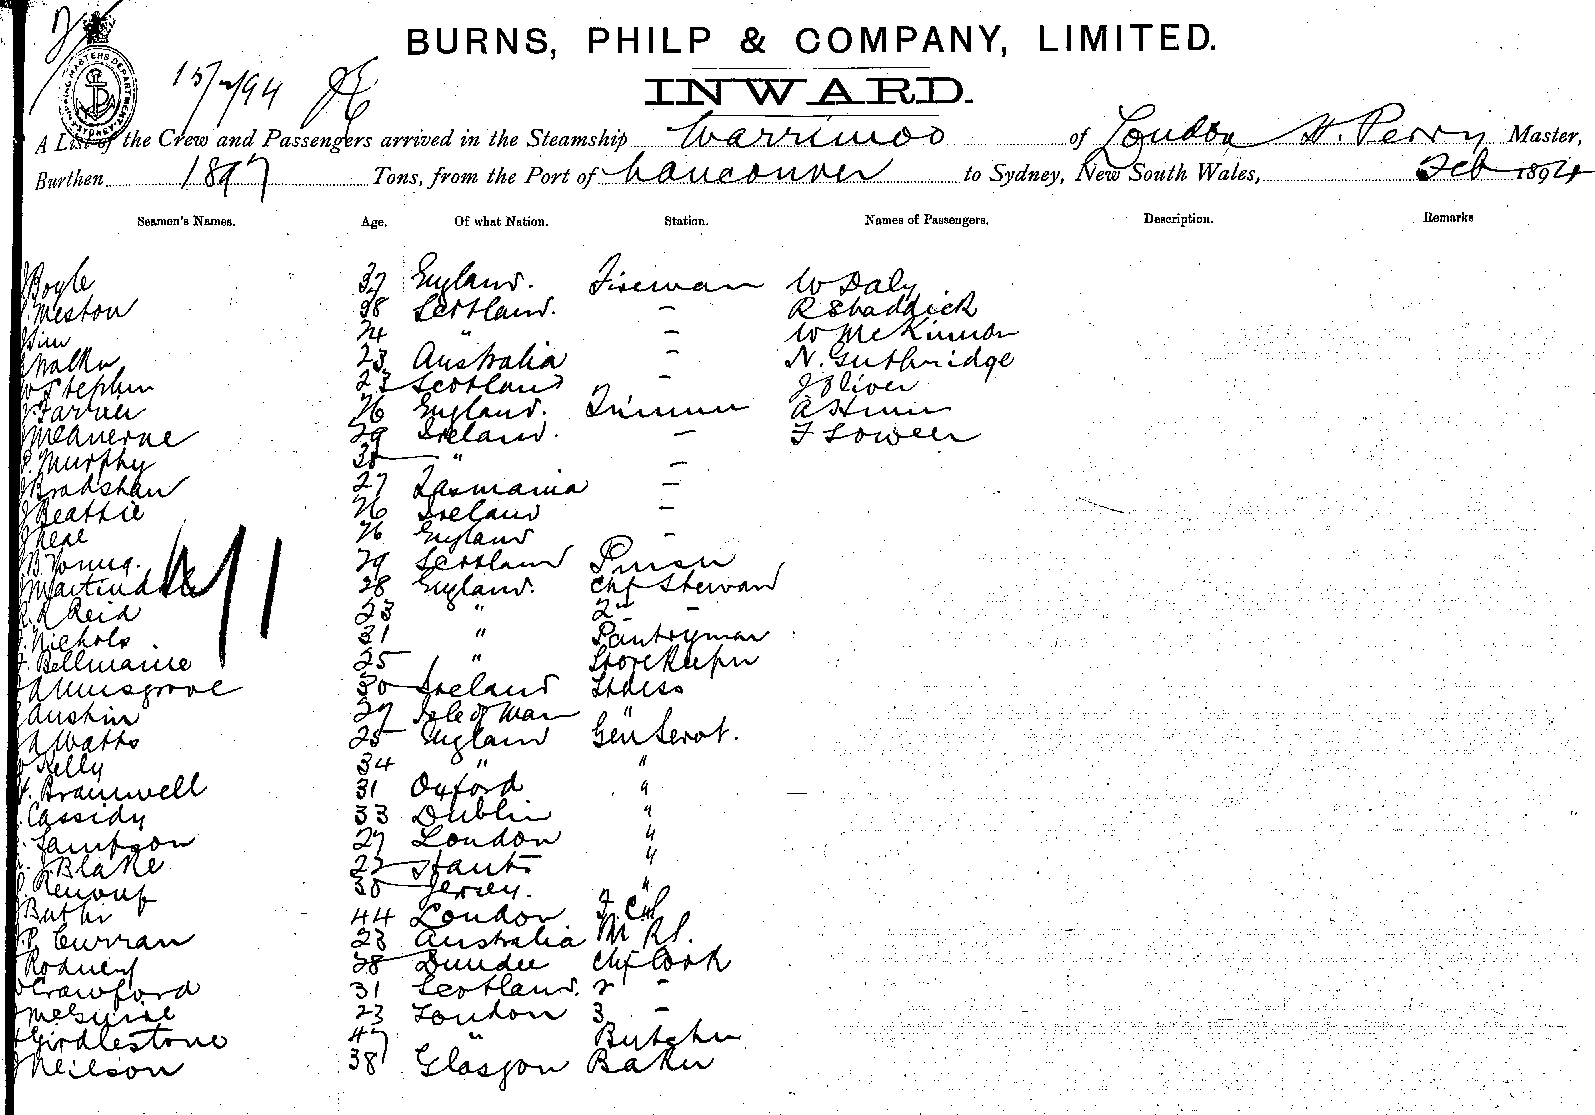 BURNS, PHILP & COMPANY, LIMITED.
INWARD.
15/2/94
A List of the Crew and Passengers arrived in the Steamship Warrimoo of London H. Perry Master,
Burthen 1897 Tons, from the Port of Vancouver to Sydney, New South Wales, Feb 1894
Seamen's Names. Age. Of what Nation. Station. Names of Passengers. Description. Remarks
J Boyle 37 England. Fireman W Daly
Weston 38 Scotland. – R Shaddick
Sim 24 " – W McKinnon
Walker 23 Australia – N. Guthbridge
W Stephen 23 Scotland – J Oliver
J Farrer 26 England. Trimmer A
29 Ireland. – F
P. Murphy 35 " –
J Bradshaw 27 Tasmania –
J Beattie 26 Ireland –
J Neal 26 England –
B Young. 29 Scotland Purser
Martindale 28 England. Chf Steward
R Reid 23 " 2nd –
Nichols 31 " Pantryman
Bellmaine 25 " Storekeeper
A Musgrove 30 Ireland Stdess
Austin 29 Isle of Man "
A Watts 25 England Gen Servt.
Kelly 34 " "
Bramwell 31 Oxford "
Cassidy 33 Dublin "
Sampson 27 London "
J Blake 22 Hants "
Renouf 30 Jersey. "
J Butler 44 London
P. Curran 23 Australia
Rodney 38 Dundee Chf Cook
Crawford 31 Scotland. 2 –
J McGuire 23 London 3 –
H Girdlestone 47 " Butcher
J Neilson 38 Glasgow Baker